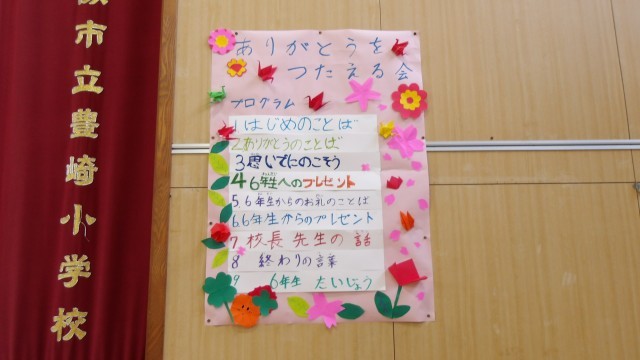 市立豊崎小学校
ありがとうを
つたえる会
プログラム
1 はじめのことば
2 ありがとうのことば
3 思いでにのこそう
4 6年生へのプレゼント
5 6年生からのお礼のことば
6 6年生からのプレゼント
7 校長先生の話
8 終わりの言葉
9 6年生 たいじょう